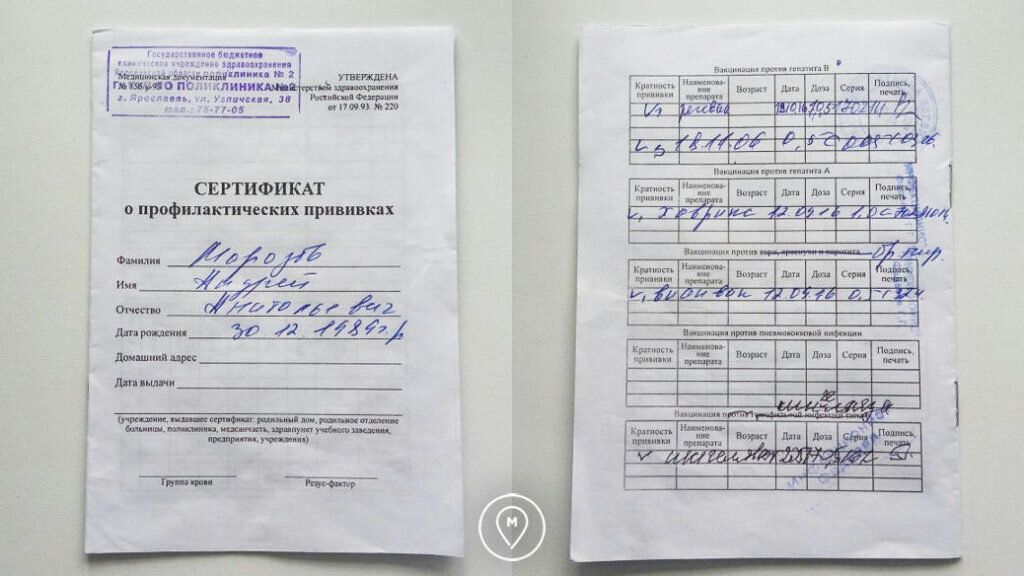 Государственное бюджетное
клиническое учреждение здравоохранения
Ярославской области поликлиника № 2
ГБКУЗ ЯО ПОЛИКЛИНИКА №2
г. Ярославль, ул. Угличская, 38
тел.: 75-77-05
Медицинская документация
№ 156/у-93
УТВЕРЖДЕНА
Министерством здравоохранения
Российской Федерации
от 17.09.93. № 220
СЕРТИФИКАТ
о профилактических прививках
Фамилия Морозов
Имя Андрей
Отчество Анатольевич
Дата рождения 30.12.1989г.р.
Домашний адрес
Дата выдачи
(учреждение, выдавшее сертификат: родильный дом, родильное отделение
больницы, поликлиника, медсанчасть, здравпункт учебного заведения,
предприятия, учреждения)
Группа крови Резус-фактор
М
Вакцинация против гепатита В
Кратность прививки Наименова-ние препарата Возраст Дата Доза Серия Подпись, печать
V3
18.11.06 0,5
Вакцинация против гепатита А
Кратность прививки Наименова-ние препарата Возраст Дата Доза Серия Подпись, печать
V1 Хаврикс 12.04.16 1,0
Вакцинация против кори, краснухи и паротита бр.тиф.
Кратность прививки Наименова-ние препарата Возраст Дата Доза Серия Подпись, печать
V1 Вианвак 12.04.16 0,5
Вакцинация против пневмококковой инфекции
Кратность прививки Наименова-ние препарата Возраст Дата Доза Серия Подпись, печать
Вакцинация против
Кратность прививки Наименова-ние препарата Возраст Дата Доза Серия Подпись, печать
V шигеллвак